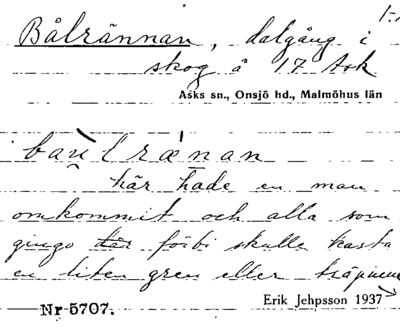 Bålrännan, dalgång i
skog å 17 Ask
Asks sn., Onsjö hd., Malmöhus län
här hade en man
omkommit och alla som
gingo där förbi skulle kasta
en liten gren eller träpinne
Erik Jehpsson 1937
Nr 5707.